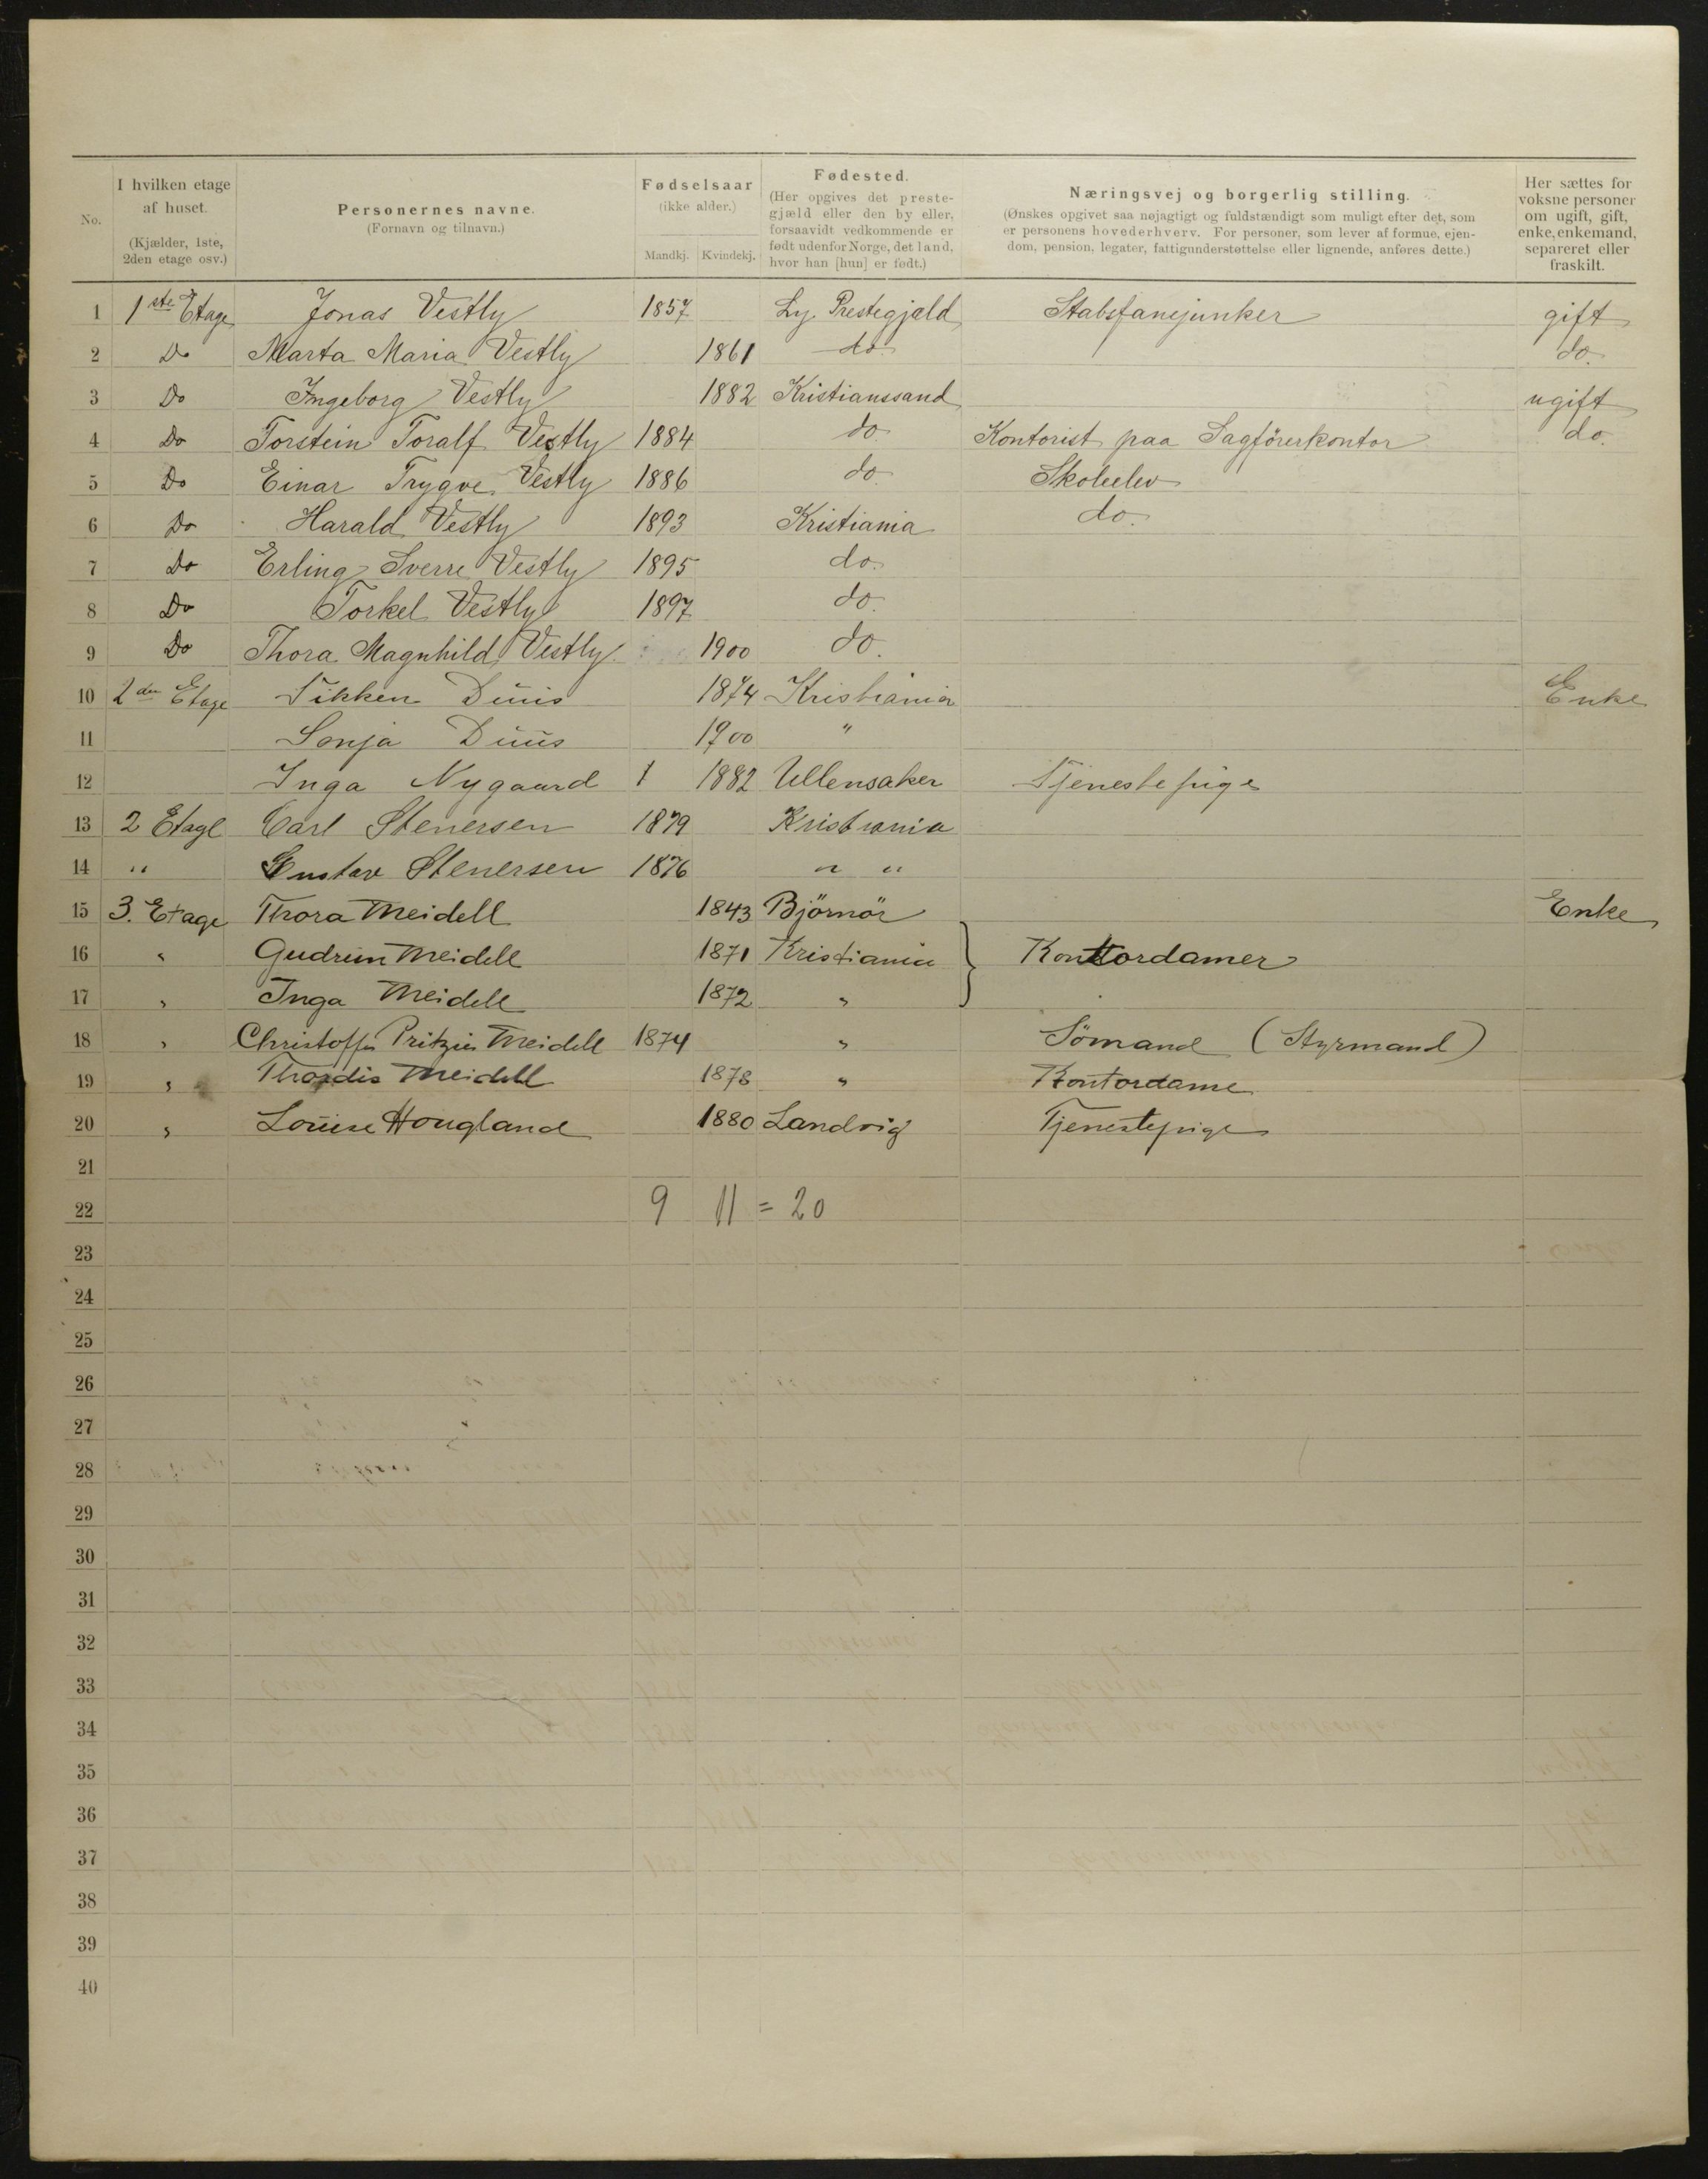 No.
I hvilken etage af huset. (Kjælder, 1ste, 2den etage osv.)
Personernes navne. (Fornavn og tilnavn.)
Fødselsaar (ikke alder.) Mandkj. Kvindekj.
Fødested. (Her opgives det prestegjæld eller den by eller, forsaavidt vedkommende er født udenfor Norge, det land, hvor han [hun] er født.)
Næringsvej og borgerlig stilling. (Ønskes opgivet saa nøjagtigt og fuldstændigt som muligt efter det, som er personens hovederhverv. For personer, som lever af formue, ejendom, pension, legater, fattigunderstøttelse eller lignende, anføres dette.)
Her sættes for voksne personer om ugift, gift, enke, enkemand, separeret eller fraskilt.
1 1ste Etage Jonas Vestly 1857 Ly. Prestegjæld Stabsfanejunker gift
2 Do Marta Maria Vestly 1861 do. do.
3 Do Ingeborg Vestly 1882 Kristianssand ugift
4 Do Torstein Toralf Vestly 1884 do Kontorist paa Sagförerkontor do.
5 Do Einar Trygve Vestly 1886 do Skoleelev
6 Do Harald Vestly 1893 Kristiania do.
7 Do Erling Sverre Vestly 1895 do.
8 Do Torkel Vestly 1897 do.
9 Do Thora Magnhild Vestly 1900 do.
10 2den Etage Sikken Duus 1874 Kristiania Enke
11 Sonja Duus 1900 "
12 Inga Nygaard 1 1882 Ullensaker Tjenestepige
13 2 Etage Carl Stenersen 1879 Kristiania
14 " Gustav Stenersen 1876 " "
15 3. Etage Thora Meidell 1843 Björnör Enke
16 " Gudrun Meidell 1871 Kristiania } Kontordamer
17 " Inga Meidell 1872 "
18 " Christoffer Meidell 1874 " Sömand (Styrmand)
19 " Thordis Meidell 1878 " Kontordame
20 " Louise Hougland 1880 Landvig Tjenestepige
21
22 9 11 = 20
23
24
25
26
27
28
29
30
31
32
33
34
35
36
37
38
39
40